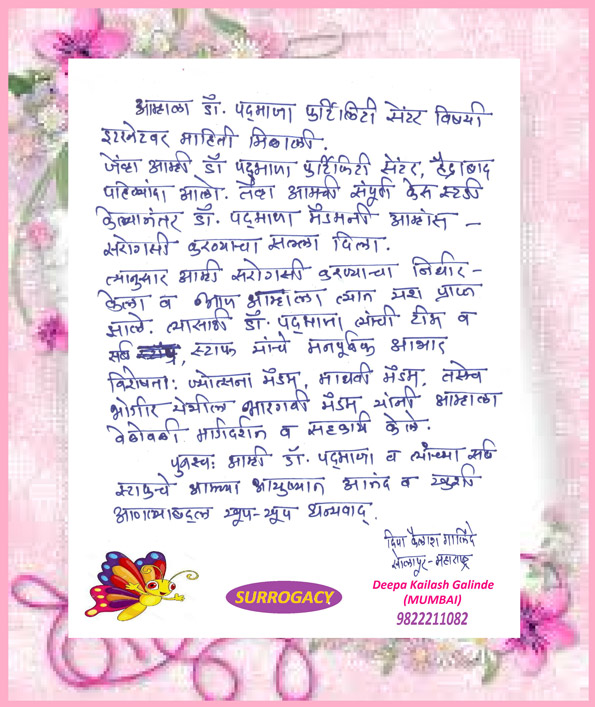 आम्हाला डॉ. पद्माजा फर्टिलिटी सेंटर विषयी
इंटरनेटवर माहिती मिळाली.
जेंव्हा आम्ही डॉ पद्माजा फर्टिलिटी सेंटर, हैद्राबाद
पहिल्यांदा आलो. तेंव्हा आमची संपूर्ण केस स्टडी
केल्यानंतर डॉ. पद्माजा मॅडमनी आम्हांस -
सरोगसी करण्याचा सल्ला दिला.
त्यानुसार आम्ही सरोगसी करण्याचा निर्धार -
केला व आज आम्हाला त्यात यश प्राप्त
झाले. त्यासाठी डॉ. पद्माजा त्यांची टीम व
सर्व स्टाफ यांचे मनपूर्वक आभार
विशेषता: ज्योत्सना मॅडम, माधवी मॅडम, तसेच
भार्गवी मॅडम यांनी आम्हाला
वेळोवेळी मार्गदर्शन व सहकार्य केले.
पुनश्च: आम्ही डॉ. पद्माजा व त्यांच्या सर्व
स्टाफचे आमच्या आयुष्यात आनंद व खुशी
आणल्याबद्दल खूप-खूप धन्यवाद.
दिपा कैलाश गालिंदे
सोलापूर-महाराष्ट्र
SURROGACY
Deepa Kailash Galinde
(MUMBAI)
9822211082